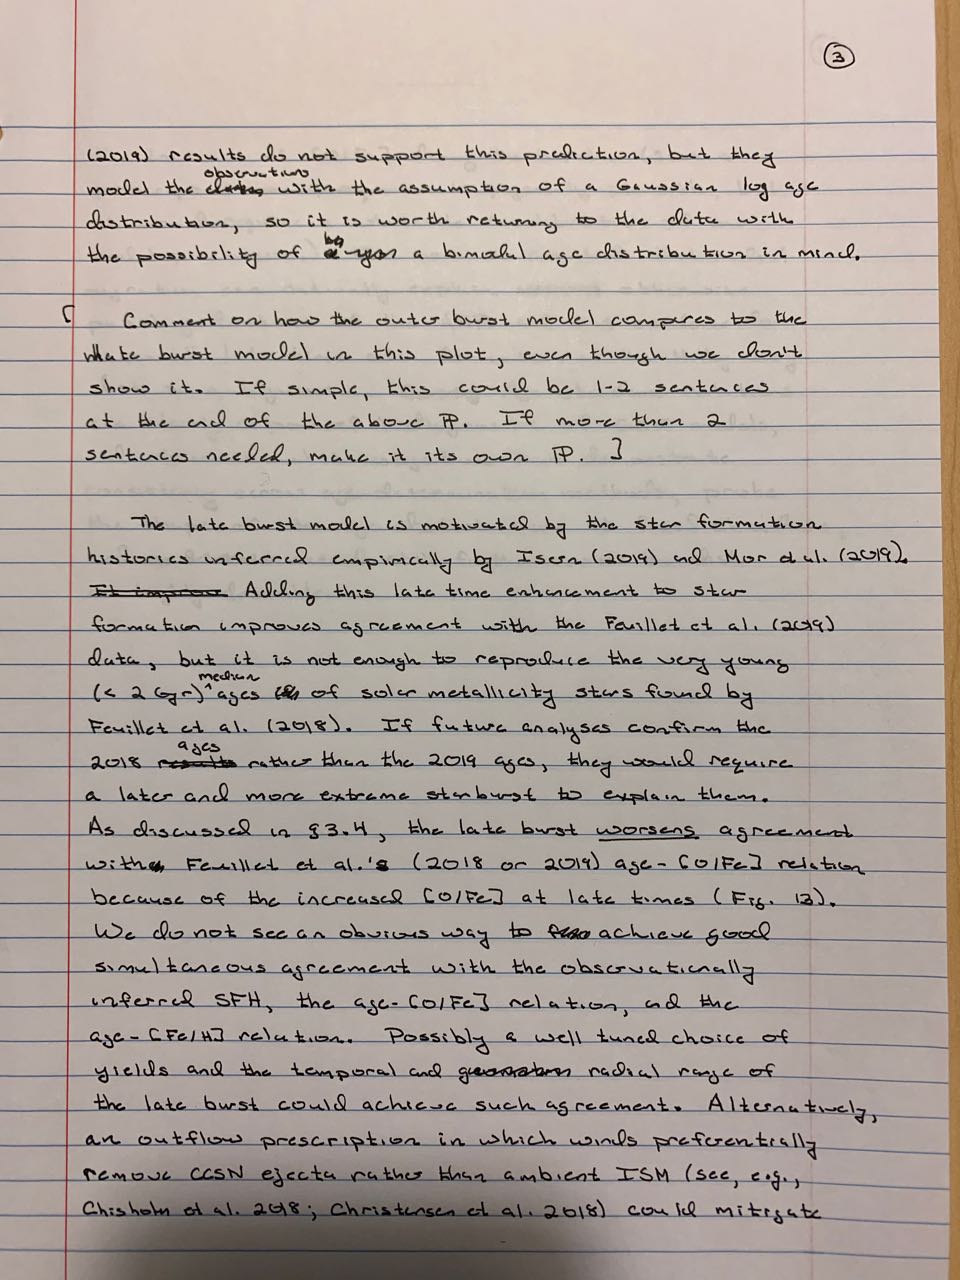 3
(2019) results do not support this prediction, but they
observations
model the with the assumption of a Gaussian log age
distribution, so it is worth returning to the data with
the possibility of a bimodal age distribution in mind.
[ Comment on how the outer burst model compares to the
late burst model in this plot, even though we don't
show it. If simple, this could be 1-2 sentences
at the end of the above ¶. If more than 2
sentences needed, make it its own ¶. ]
The late burst model is motivated by the star formation
histories inferred empirically by Isern (2019) and Mor et al. (2019).
It improves Adding this late time enhancement to star
formation improves agreement with the Feuillet et al. (2019)
data, but it is not enough to reproduce the very young
median
(< 2 Gyr) ^ ages of solar metallicity stars found by
Feuillet et al. (2018). If future analyses confirm the
ages
2018 results rather than the 2019 ages, they would require
a later and more extreme starburst to explain them.
As discussed in §3.4, the late burst worsens agreement
with Feuillet et al.'s (2018 or 2019) age-[O/Fe] relation
because of the increased [O/Fe] at late times (Fig. 13).
We do not see an obvious way to achieve good
simultaneous agreement with the observationally
inferred SFH, the age-[O/Fe] relation, and the
age-[Fe/H] relation. Possibly a well tuned choice of
yields and the temporal and radial range of
the late burst could achieve such agreement. Alternatively,
an outflow prescription in which winds preferentially
remove CCSN ejecta rather than ambient ISM (see, e.g.,
Chisholm et al. 2018; Christensen et al. 2018) could mitigate